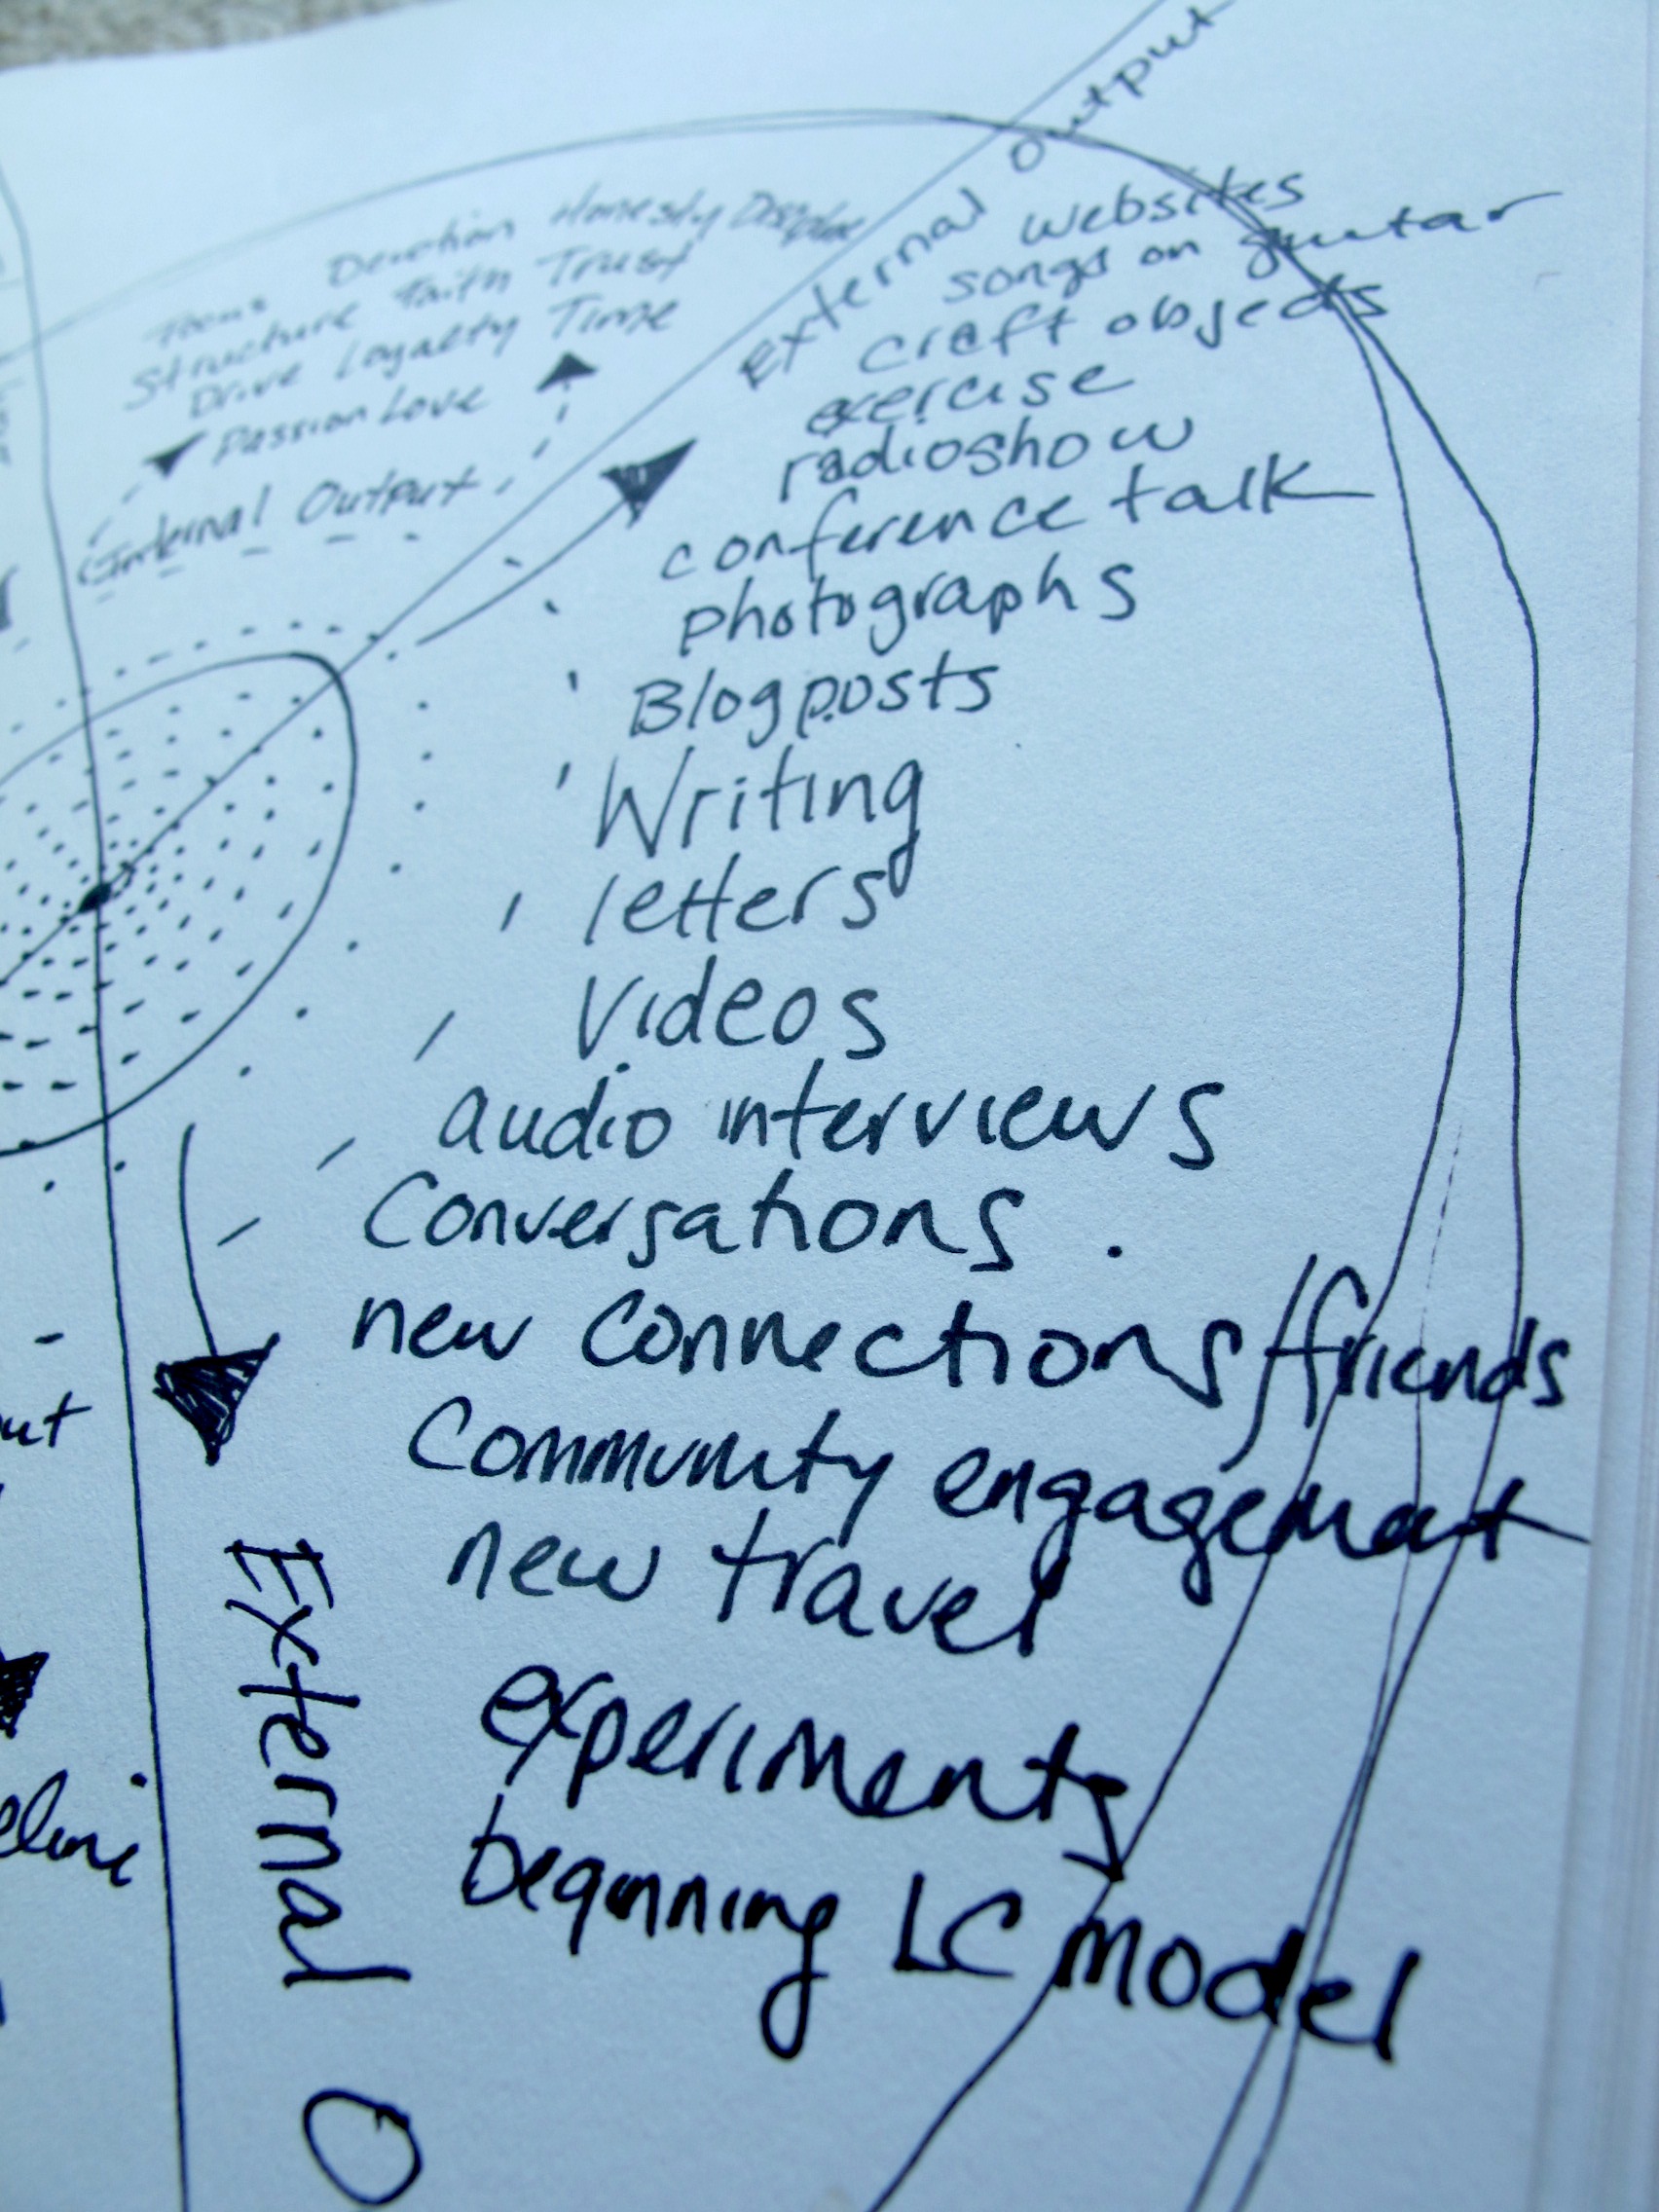 External Output
Focus Devotion Honesty Discipline
Structure Faith Trust
Drive Loyalty Time
Passion Love
Internal Output
websites
songs on guitar
craft objects
exercise
radioshow
conference talk
photographs
Blogposts
Writing
letters
Videos
audio interviews
Conversations
new connections/friends
Community engagement
new travel
experiments
beginning LC model
External O